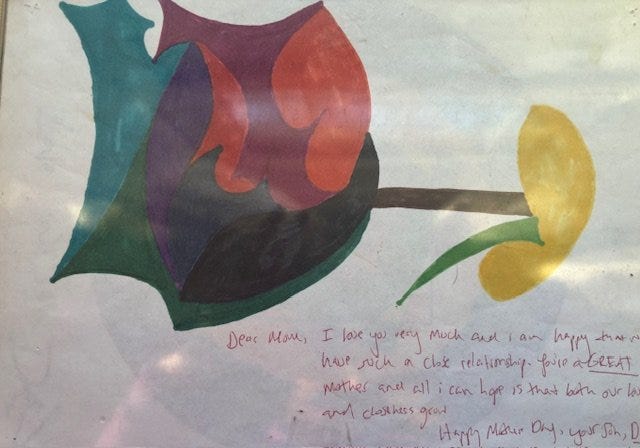 Dear Mom, I love you very much and i am happy that w
have such a close relationship. You're a GREAT
Mother and all i can hope is that both our lo
and closeness grow
Happy Mother Day, your son,